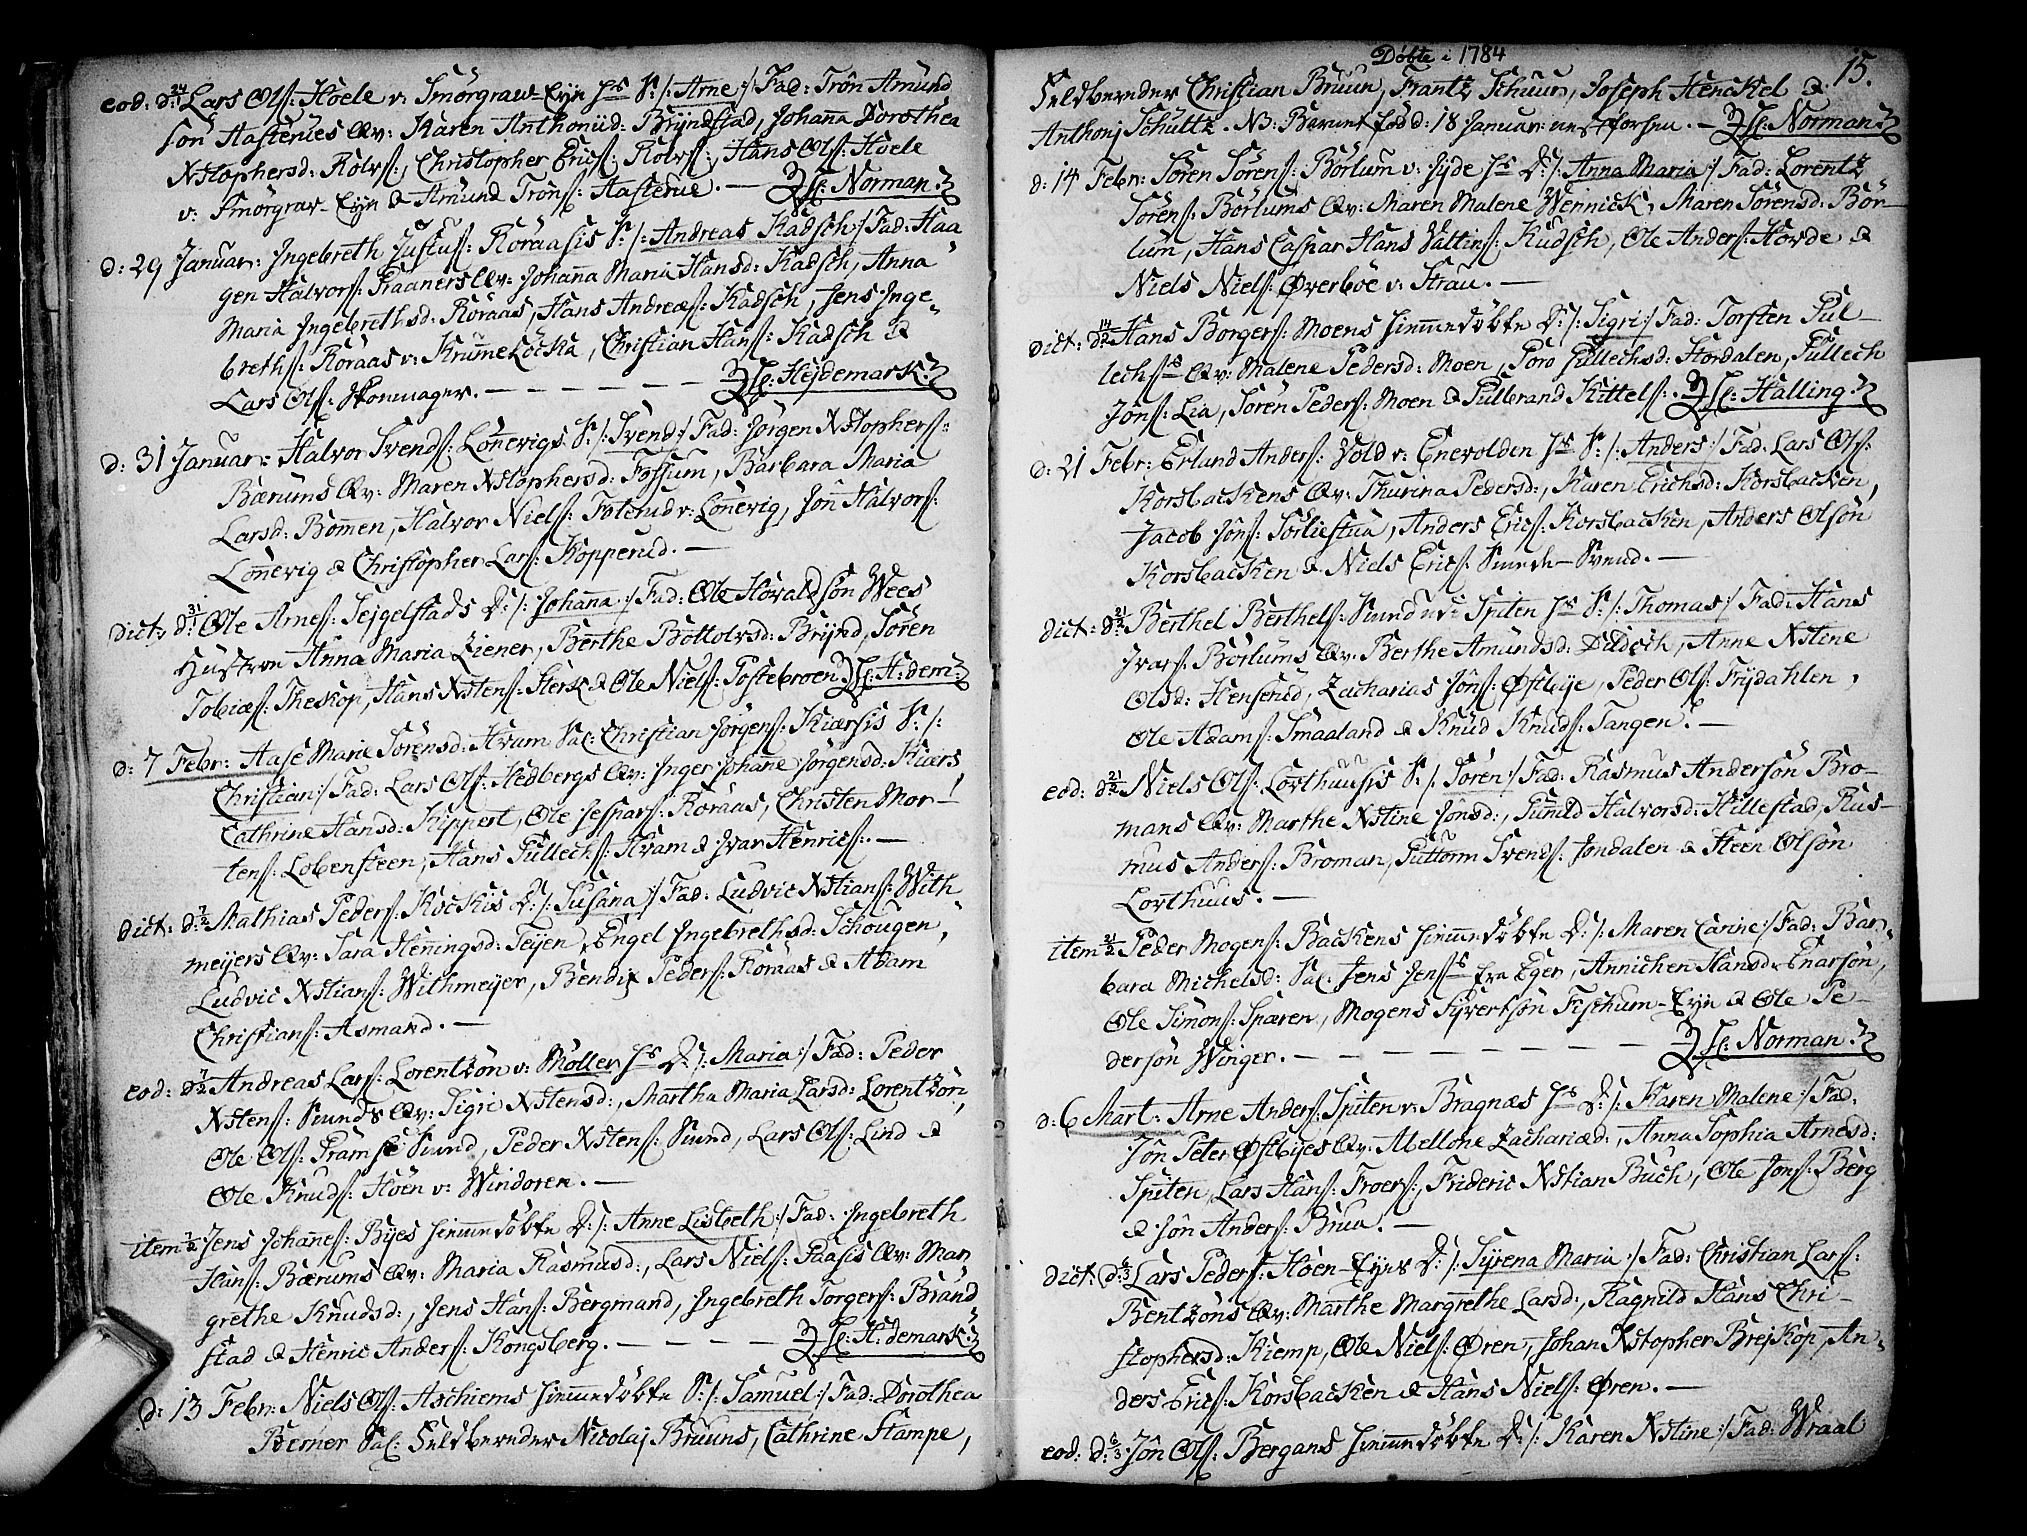 eod: d: 24/1 Lars Ols: Hoele v: Smörgrav-Eyje Hs S: /: Arne :/ Fad: Trön Amund
sön Hasterües Qv: Karen Anthoniid: Bryndstad, Johana Dorothea
Xstophersd: Rolvs:, Christopher Erics: Rolvs:, Hans Ols: Hoele
v: Smörgrav-Eyje & Amund Tröns: Hasterüe. — Hl: Norman
d: 29 Januar: Ingebreth Justus: Roraasis S: /: Andreas Kadsch :/ Fad: Haa
gen Halvors: Praaners Qv: Johana Maria Hansd: Kadsch, Anna
Maria Ingebrethsd: Roraas, Hans Andreæs: Kadsch, Jens Inge-
breths: Roraas v: Krumeløcka, Christian Hans: Kadsch &
Lars Ols: Skomager. — — — — — — Hl: Hejdemark
d: 31 Januar: Halvor Svends: Lönevigs S: /: Svend :/ Fad: Jörgen Xstophers:
Bærums Qv: Maren Xstophersd: Fossum, Barbara Maria
Larsd: Bomen, Halvor Niels: Foterud v: Lönevig, Jön Halvors:
Lönevig & Christopher Lars: Kopperud. —
dict: d: 31/1 Ole Arnes: Tejgelstads D: /: Johana :/ Fad: Ole Howaldsön Wees
Hustroe Anna Maria Ziener, Berthe Bottolvsd: Brynd, Sören
Tobiæs: Theskop, Hans Xstens: Sterk & Ole Niels: Postebroen Hl: H:dem:
d: 7 Febr: Aase Marie Sörensd: Hvam Sal: Christian Jörgens: Kiærsis S: /:
Christian :/ Fad: Lars Ols: Hedbergs Qv: Inger Johanne Jörgensd: Kiærs
Cathrine Hansd: Hippert, Ole Jespars: Roraas, Christen Mor-
tens: Lobensteen, Hans Gullechs: Hvam & Ivar Henrics: —
dict: d: 7/2 Mathias Peders: Kockis D: /: Susana :/ Fad: Ludvic Xstians: With
meijers Qv: Sara Heningsd: Teijen, Engel Ingebrethsd: Schougen,
Ludvic Xstians: Withmeyer, Bendix Peders: Roraas & Adam
Christians: Asmand. —
eod: d: 7/2 Andreas Lars: Lorentzön v: Möller Hs D: /: Maria :/ Fad: Peder
Xstens: Sunds Qv: Sigri Xstensd:, Martha Maria Larsd: Lorentzön,
Ole Ols: Gramse Sund, Peder Xstens: Sund, Lars Ols: Lind &
Ole Knuds: Höen v: Windoren. —
item 7/2 Jens Johanes: Byes hiemmedöbte D: /: Anne Lisbeth :/ Fad: Ingebreth
Hans: Bærums Qv: Maria Rasmusd:, Lars Niels: Paasis Qv: Mar
grethe Knudsd:, Jens Hans: Bergmand, Ingebreth Torgers: Brand
stad & Henric Anders: Kongsberg. — — — — Hl: H:demark
d: 13 Febr: Niels Ols: Aschiems hiemmedöbte S: /: Samuel :/ Fad: Dorothea
Berner Sal: Feldbereder Nicolaj Bruuns, Cathrine Stampe,
Döbte i 1784
15.
Feldbereder Christian Bruun, Frantz Schuur, Joseph Henckel &
Anthonj Schultz. NB: Barnet föd d: 18 Januar: næstforhen. — Hl: Norman
d: 14 Febr: Sören Sörens: Börlum v: Syde Hs D: /: Anna Maria :/ Fad: Lorentz
Sörens: Börlums Qv: Maren Malene Wennick, Maren Sörensd: Bör-
lum, Hans Caspar Hans Valtins: Kudsch, Ole Anders: Horde &
Niels Niels: Øverböe v: Strau. —
dict: d: 14/2 Hans Borgers: Moens hiemmedöbte D: /: Sigri :/ Fad: Torsten Gul-
lechss Qv: Malene Pedersd: Moen, Goro Gullechsd: Stordalen, Gullech
Jöns: Lia, Sören Peders: Moen & Gulbrand Kittels: Hl: Halling
d: 21 Febr: Erlund Anders: Vold v: Enevolden Hs S: /: Anders :/ Fad: Lars Ols:
Korsbackens Qv: Thurina Pedersd:, Karen Erichsd: Korsbacken,
Jacob Jöns: Sörliestua, Anders Erics: Korsbacken, Anders Olsön
Korsbacken & Niels Erics: Sunde-Svend. —
dict: d: 21/2 Berthel Berthels: Sund v: Spiten Hs S: /: Thomas :/ Fad: Hans
Ivars: Börlums Qv: Berthe Amundsd: Didsch, Anne Xstine
Olsd: Hensend, Zacharias Jöns: Østbye, Peder Ols: Frydahlen,
Ole Adams: Smaaland & Knud Knuds: Tangen. —
eod: d: 21/2 Niels Ols: Lorthuusis S: /: Sören :/ Fad: Rasmus Andersön Bro-
mans Qv: Marthe Xstine Jönsd:, Gunild Halvorsd: Hillestad, Ras-
mus Anders: Broman, Guttorm Svends: Jondalen & Steen Olsön
Lorthuus. —
item 21/2 Peder Mogens: Backens hiemmedöbte D: /: Maren Carine :/ Fad: Bar-
bara Michelsd: Sal: Jens Jenss fra Eger, Annichen Hansd: Enarsön,
Ole Simons: Spæren, Mogens Syvertsön Fischum-Eyje & Ole Pe-
dersön Winger. — — — — — — — Hl: Norman
d: 6 Mart: Arne Anders: Spiten v: Bragnæs Hs D: /: Karen Malene :/ Fad:
Jön Peter Østbyes Qv: Abellone Zachariæd:, Anna Sophia Arnesd:
Spiten, Lars Hans: Froers:, Frideric Xstian Buch, Ole Jons: Berg
& Jön Anders: Brua. —
dict: d: 6/3 Lars Peders: Höen-Eyes D: /: Syrena Maria :/ Fad: Christian Lars:
Bentzöns Qv: Marthe Margrethe Larsd:, Ragnild Hans Chri-
stophersd: Kiemp, Ole Niels: Ören, Johan Xstopher Brejkop, An-
ders Erics: Korsbacken & Hans Niels: Ören. —
eod: d: 6/3 Jön Ols: Bergans hiemmedöbte D: /: Karen Xstine :/ Fad: Wraal